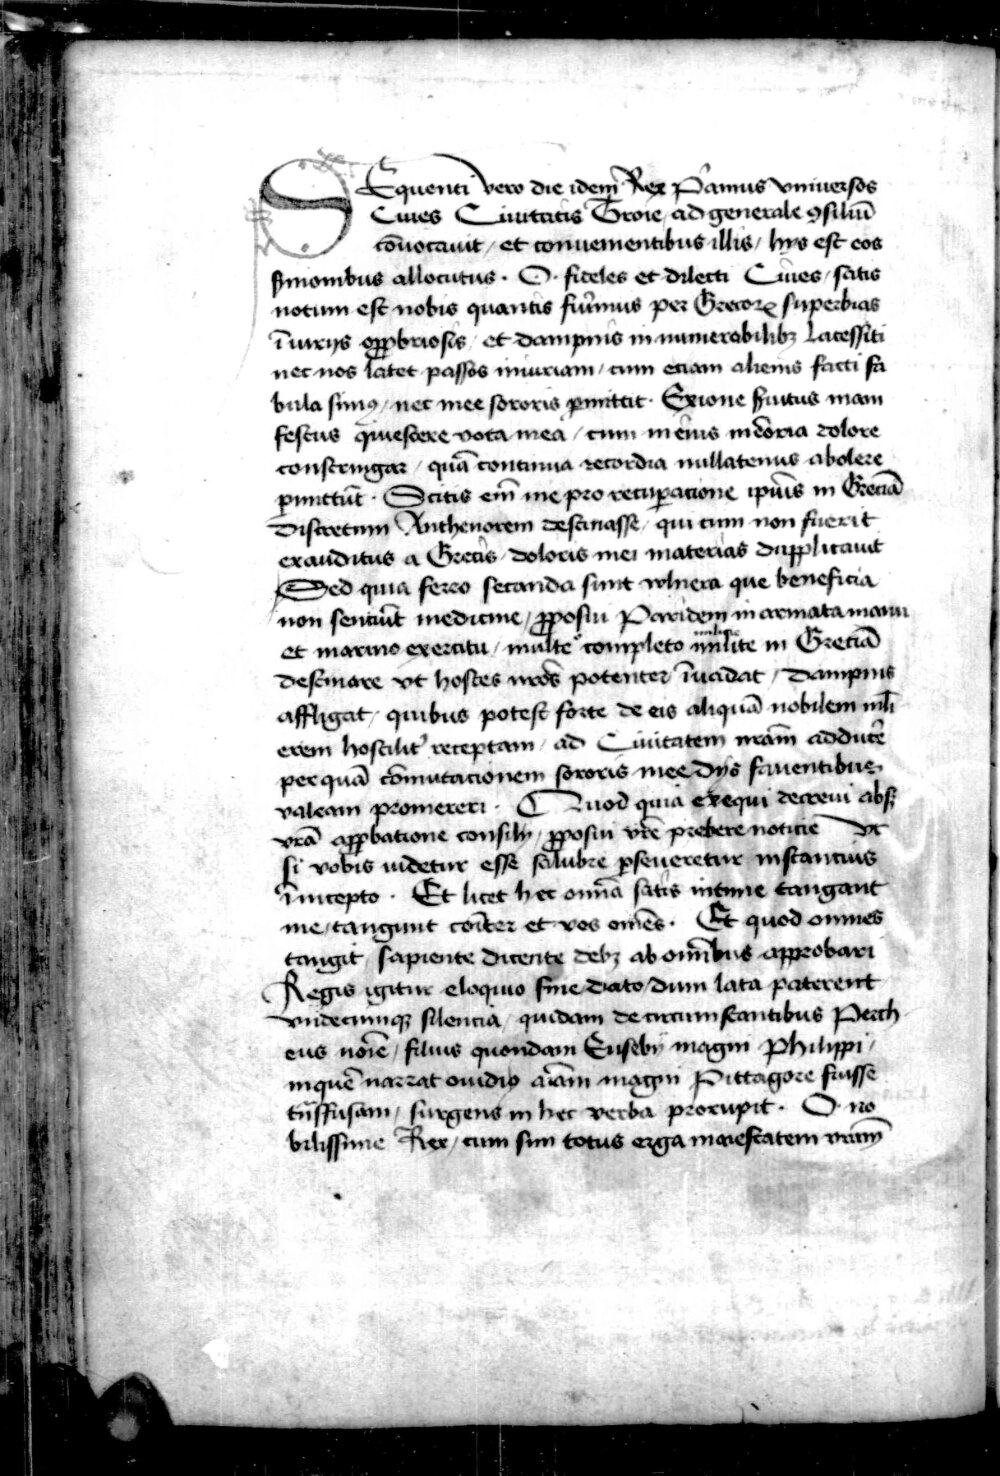 SEquenti vero die idem Rex P̃amus vniuersos
Ciues Ciuitatis Troie / ad generale ꝯsiliũ
cõuocauit / et conuenientibus illis / hys est eos
ẜmonibus allocutus . O . fideles et dilecti Ciues / satis
notum est nobis quantis fuim̃us per Grecoꝝ superbias
ĩniurijs opꝓbriosis / et dampnis innumerabilibꝫ lacessiti
nec nos latet passos iniuriam / cum eciam alienis facti fa
bula simꝰ / nec mee sororis ꝑmittit . Exione ẜuitus mani
festus quiescere vota mea / cum in eius mẽoria dolore
constringar / quã continua recordia nullatenus abolere
ꝑmittũt . Scitis em̃ me pro recuperacione ip̃ius in Greciã
Discretum Anthenorem destinasse / qui cum non fuerit
exauditus a Grecis / doloris mei materias dupplicauit
Sed quia ferro secanda sunt vlnera que beneficia
non senciũt medicine / ꝓposui Paridem in armata manu
et marino exercitu / multo completo milite in Greciã
destinare vt hostes nr̃os potenter ĩuadat / dampnis
affligat / quibus potest forte de eis aliquã nobilem mli
erem hostilit' receptam / ad Ciuitatem nr̃am adducẽ
per quã cõmutacionem sororis mee Dys fauentibus
valeam promereri . Quod quia exequi decreui absqꝫ
vr̃a apꝓbatione consily / ꝓposui vr̃e prebere noticie vt
si vobis videtur esse salubre ꝑseueretur instancius
ĩ incepto . Et licet hec om̃ia satis intime tangant
me / tangunt cõiter et vos om̃es . Et quod omnes
tangit / sapiente dicente debꝫ ab om̃ibus approbari
Regis igitur eloquio fine dato / dum lata paterent
vndecumqꝫ silencia / quidam de circumstantibus Penth
eus nõie / filius quondam Eusebij magni Philippi /
in quẽ narrat ouidiꝰ aĩam magni Pittagore fuisse
tñsfusam / surgens in hec verba prorupit . O . no
bilissime Rex / cum sim totus erga maiestatem vr̃am